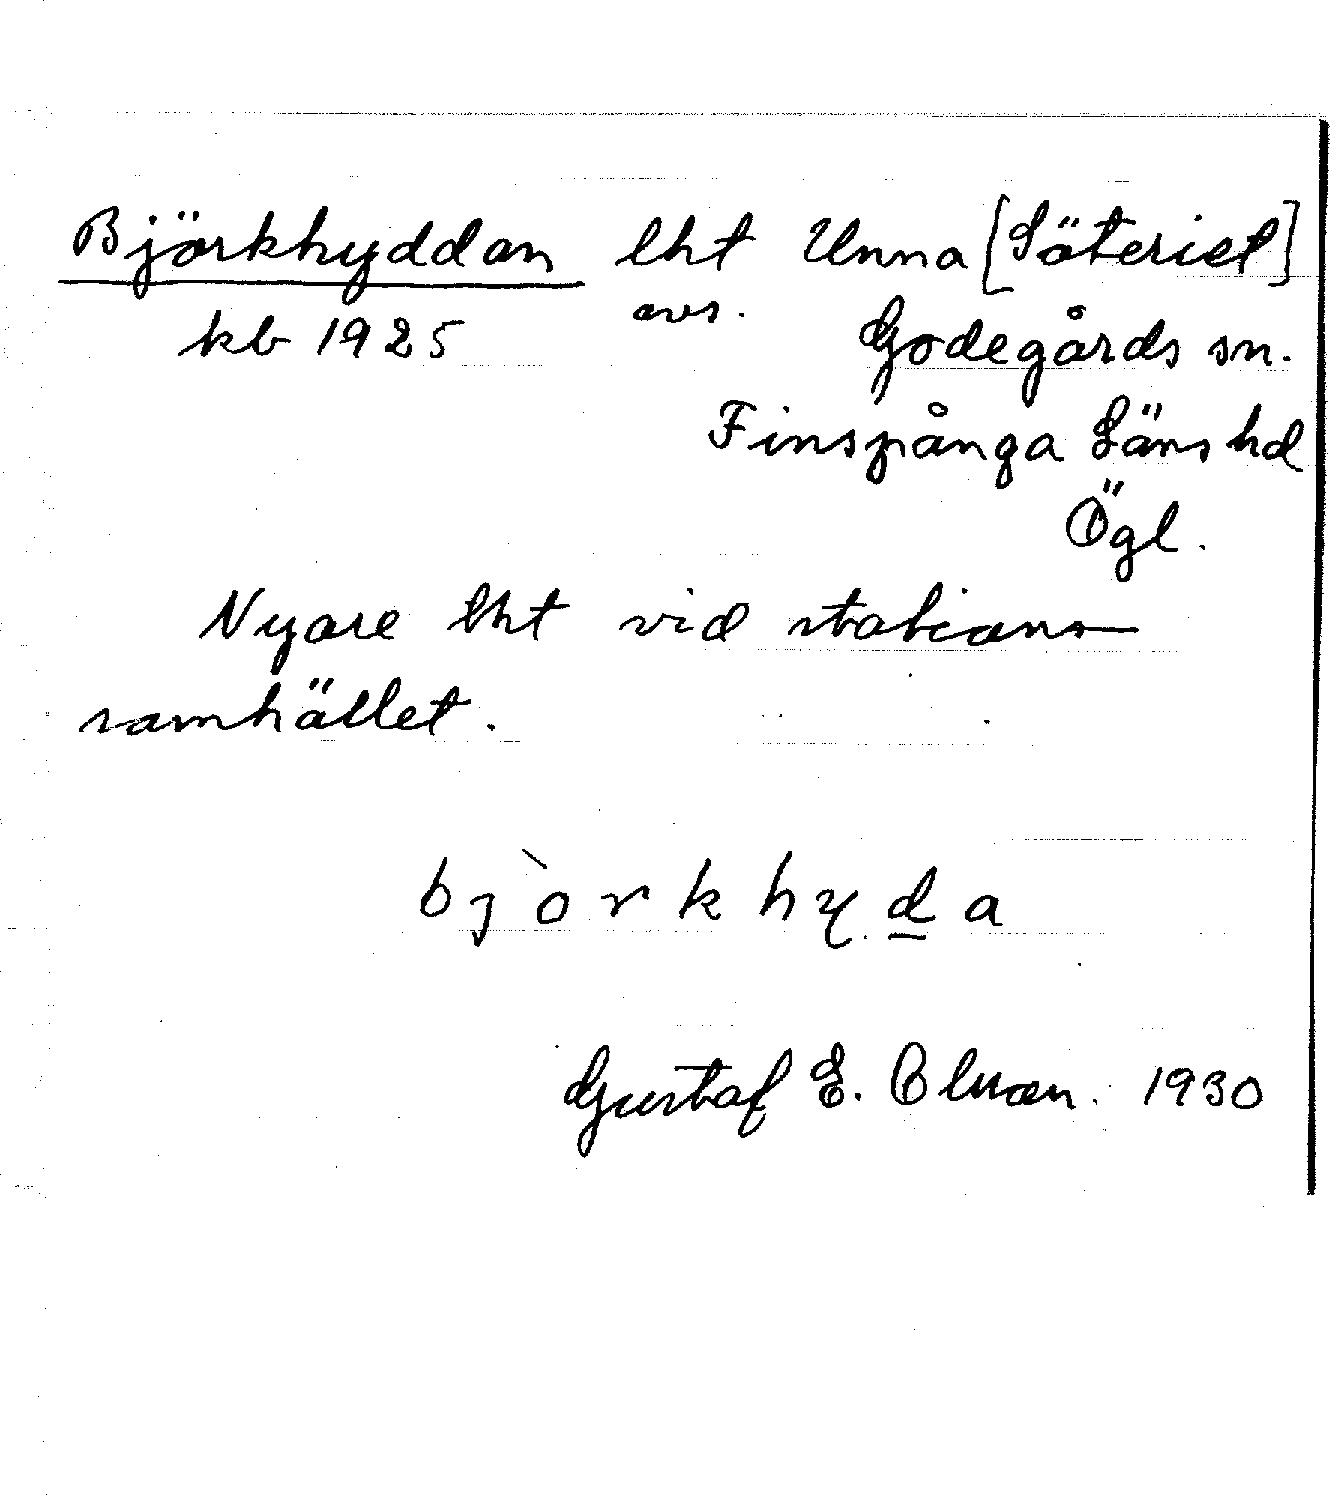 Björkhyddan lht Unna [Säteriet]
avs.
kb 1925 Godegårds sn.
Finspånga Läns hd
Ögl.
Nyare lht vid stations-
samhället.
bjòrkhyda
Gustaf E. 1930